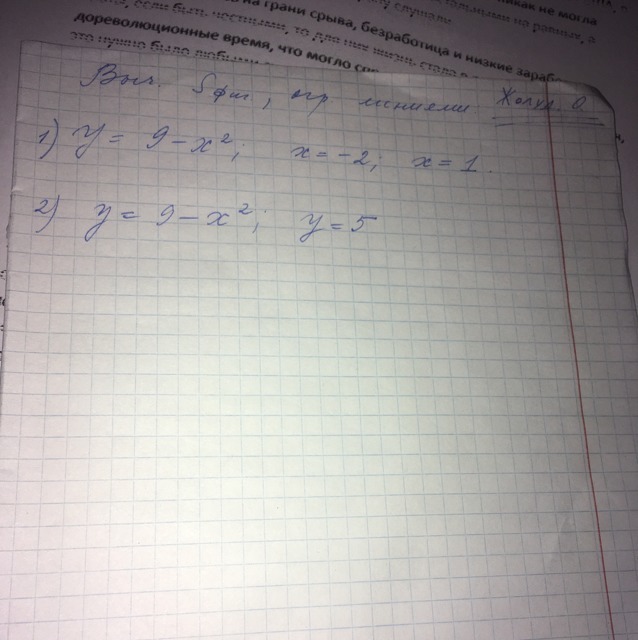 никак не могла
на грани срыва, безработица и низкие зараб
дореволюционные время, что могло
Выч. Sфиг, огр линиями
1) y = 9 - x²; x = -2; x = 1.
2) y = 9 - x²; y = 5